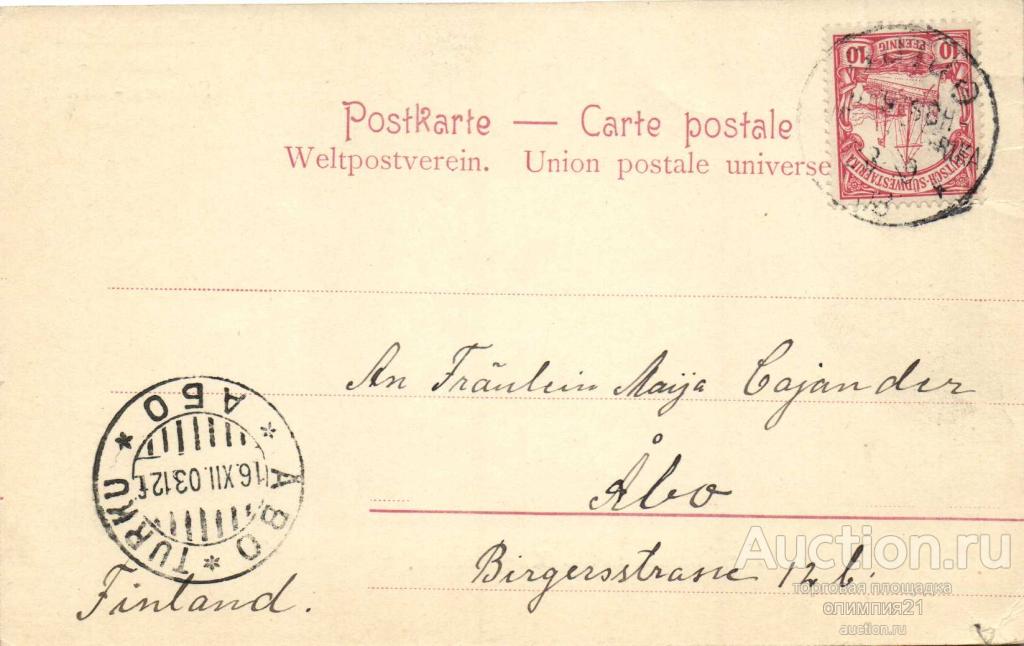 Postkarte — Carte postale
Weltpostverein. Union postale universe
10 10
PFENNIG
An Fräulein Maija Cajander
Åbo
Birgersstrasse 12 b.
Finland.
ÅBO * TURKU * АБО *
16.XII.03.12
Auction.ru
торговая площадка
олимпия21
auction.ru